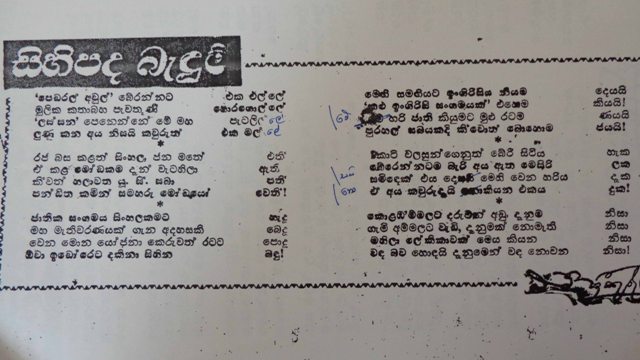 සිහිපද බැඳුම්
‘පෙඩරල් අවුල්’ බේරන්නට එක එල්ලේ
මූලික කතාබහ පැවතුණි හොරගොල්ලේ
‘ලස්සන’ පෙනෙන්නේ මේ මහ පැටලිල්ලේ
ලුණු කන අය නිසයි කවුරුත් එක මල්ලේ
*
රජ බස කළත් සිංහල ජන මතේ එති
ඒ කළ මෝඩකම දැන් වැටහීලා ඇති
කිවත් හලාවත යූ. සී. සබා පති
පන්ඩිත කමින් සමහරු මෝඩයෝ වෙති!
*
ජාතික සංගමය සිංහලකමට හැදූ
මහ මැතිවරණයක් ගැන අදහසකි බෙදූ
වෙන මොන යෝජනා කෙරුවත් රටට පොදු
ඕවා ඉඩෝරෙට දකිනා සිහින බඳු!
මෙහි සමතියට ඉංගිරිසිය නියම දෙයයි
“කළු ඉංගිරිසි සංගමයක්” එහෙම කියයි!
හරි ජාති කියුමට මුළු රටම ණයයි
පුරහල් සබයකදි කිවොත් බොහොම ජයයි!
*
කොටි වලසුන්ගෙනුත් බේරී සිටිය හැක
බේරෙන්නටම බැරි අය ඇත මෙසිරි ලක
සමිදෙක් එය මෙහි වෙන හරිය දැක
ඒ අය කවුරුදැයි නොකියන එකය දුක!
*
කොළඹම්මලට දරුවන් අඩු දැනුම නිසා
ගැමි අම්මලට වැඩි, දැනුමක් නොමැති නිසා
මහිලා ලේකිකාවක් මෙය කියන නිසා
වඳ බව හොඳයි දැනුමෙන් වඳ නොවන නිසා!